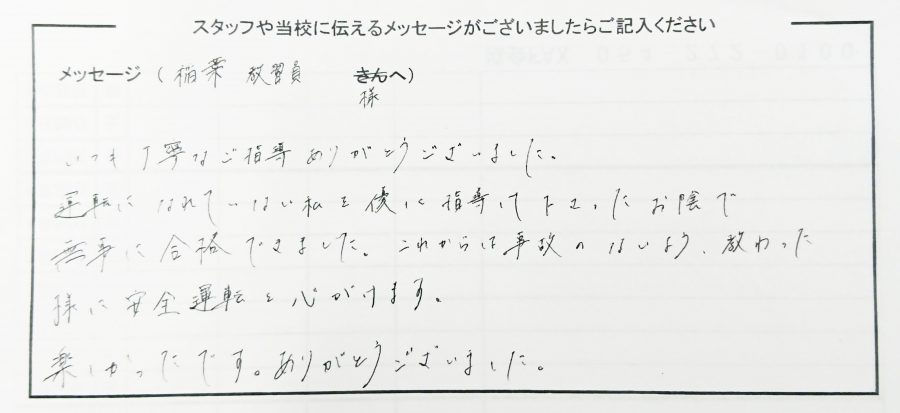 スタッフや当校に伝えるメッセージがございましたらご記入ください
メッセージ（稲葉 教習員 さんへ）
様
いつも丁寧なご指導ありがとうございました。
運転になれていない私を優に指導して下さったお陰で
無事に合格できました。これからは事故のないよう、教わった
様に安全運転を心がけます。
楽しかったです。ありがとうございました。